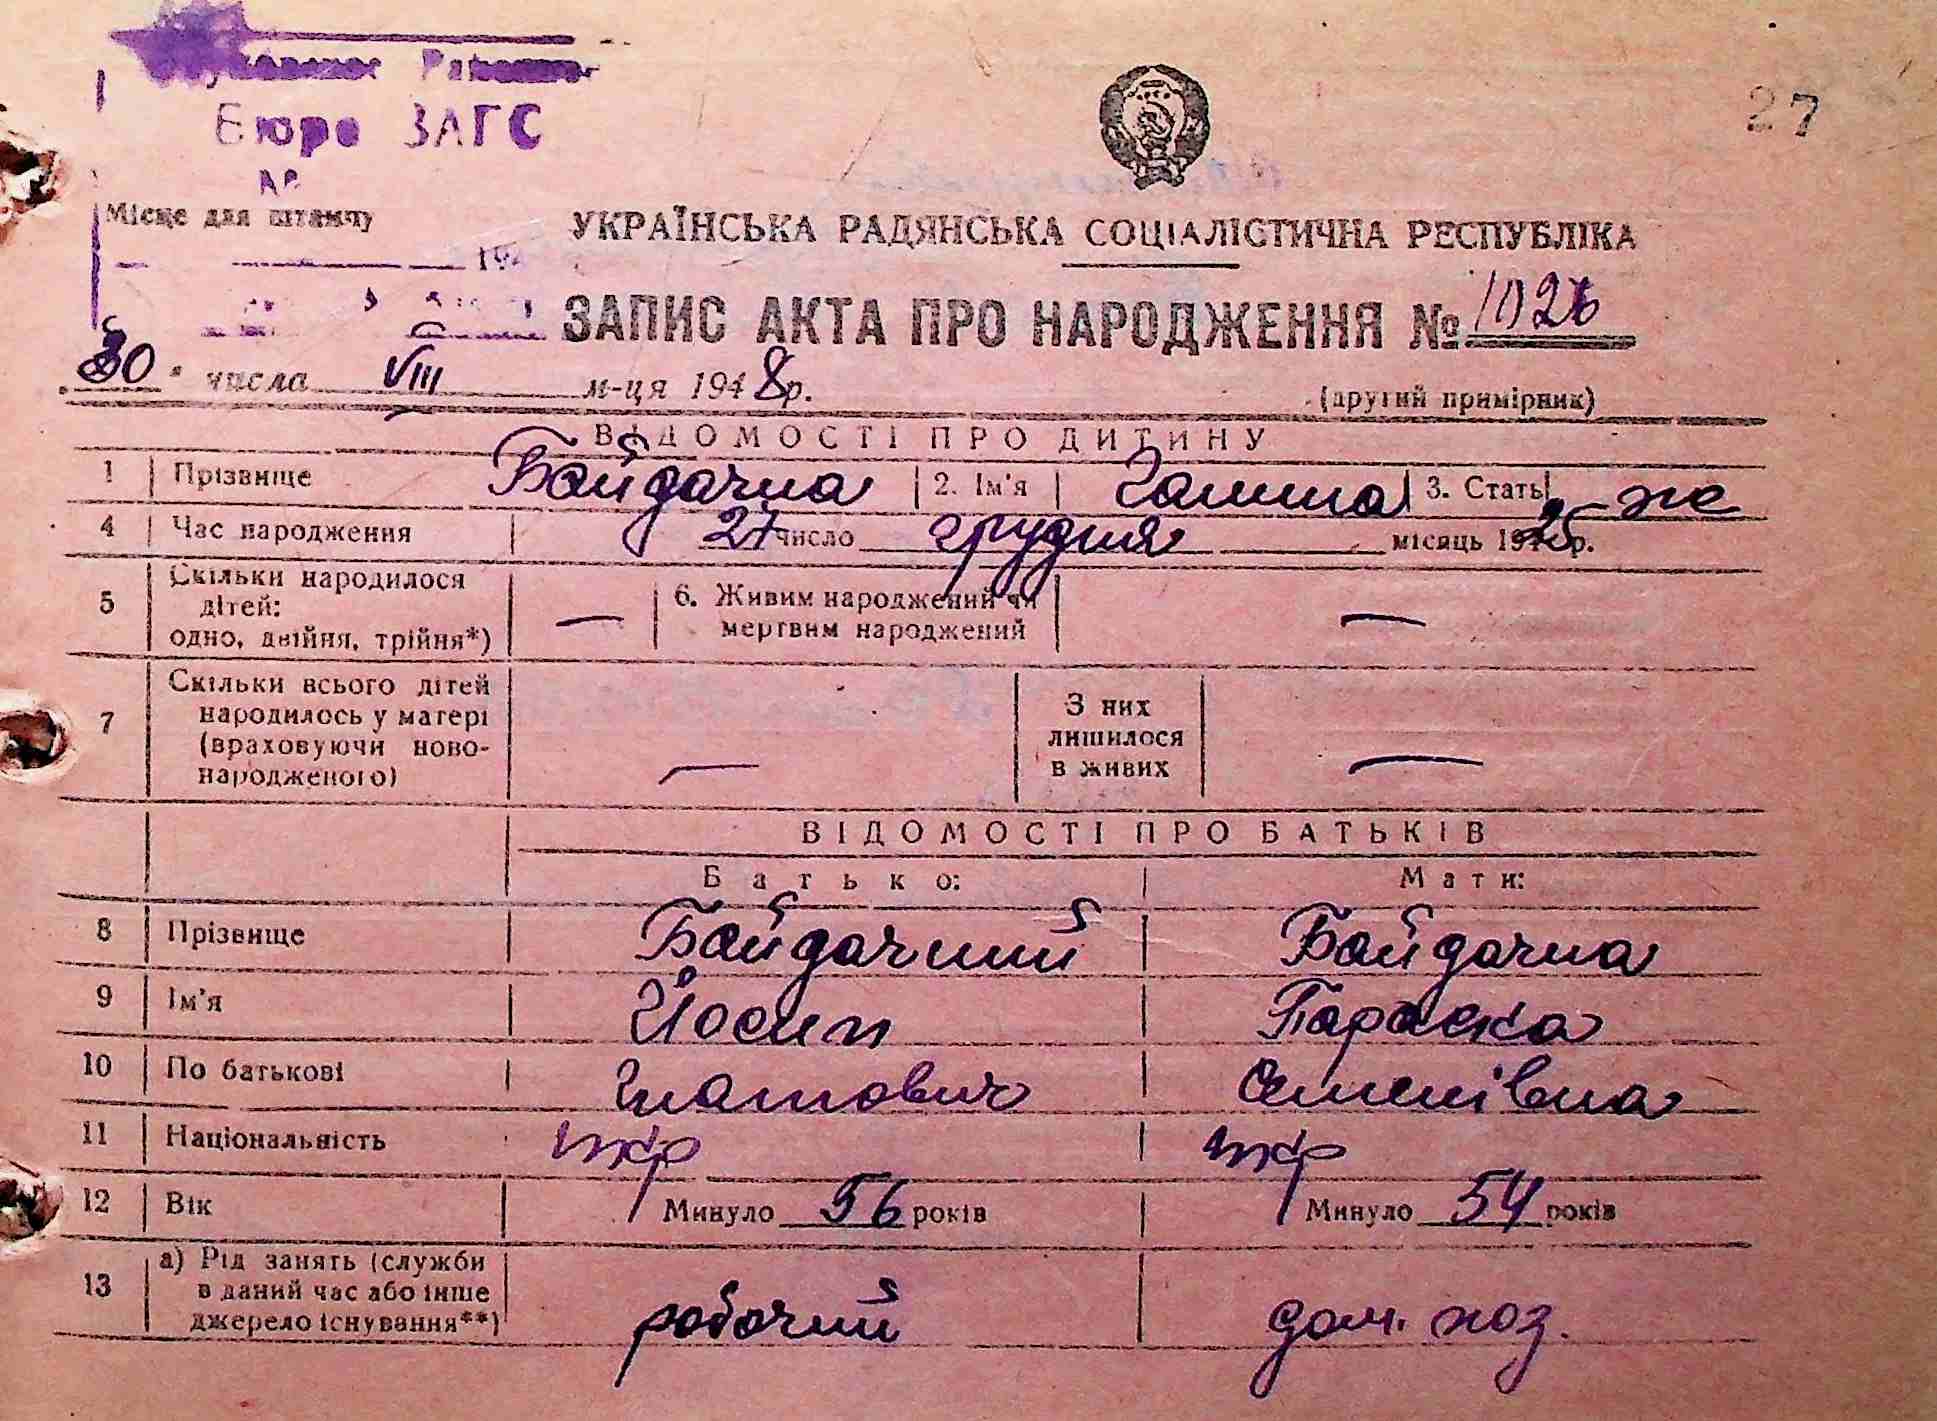 Бюро ЗАГС
№
27
Місце для штампу
УКРАЇНСЬКА РАДЯНСЬКА СОЦІАЛІСТИЧНА РЕСПУБЛІКА
194
ЗАПИС АКТА ПРО НАРОДЖЕННЯ № 1026
30 " числа VIII м-ця 1948 р.
(другий примірник)
ВІДОМОСТІ ПРО ДИТИНУ
1 Прізвище Байдачна 2. Ім'я Галина 3. Стать же
4 Час народження 27 число грудня місяць 1925 р.
5 Скільки народилося дітей: одно, двійня, трійня*) — 6. Живим народжений чи мертвим народжений —
7 Скільки всього дітей народилось у матері (враховуючи ново-народженого) — З них лишилося в живих —
ВІДОМОСТІ ПРО БАТЬКІВ
Батько: Мати:
8 Прізвище Байдачний Байдачна
9 Ім'я Йосип Параска
10 По батькові Гнатович Семенівна
11 Національність укр укр
12 Вік Минуло 56 років Минуло 54 років
13 а) Рід занять (служби в даний час або інше джерело існування**) робочий дом. хоз.